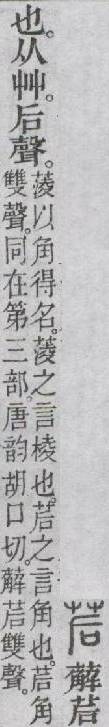 茩薢茩
也。从艸。后聲。
蔆以角得名。蔆之言棱也。茩之言角也。茩角
雙聲。同在第三部。唐韵胡口切。薢茩雙聲。